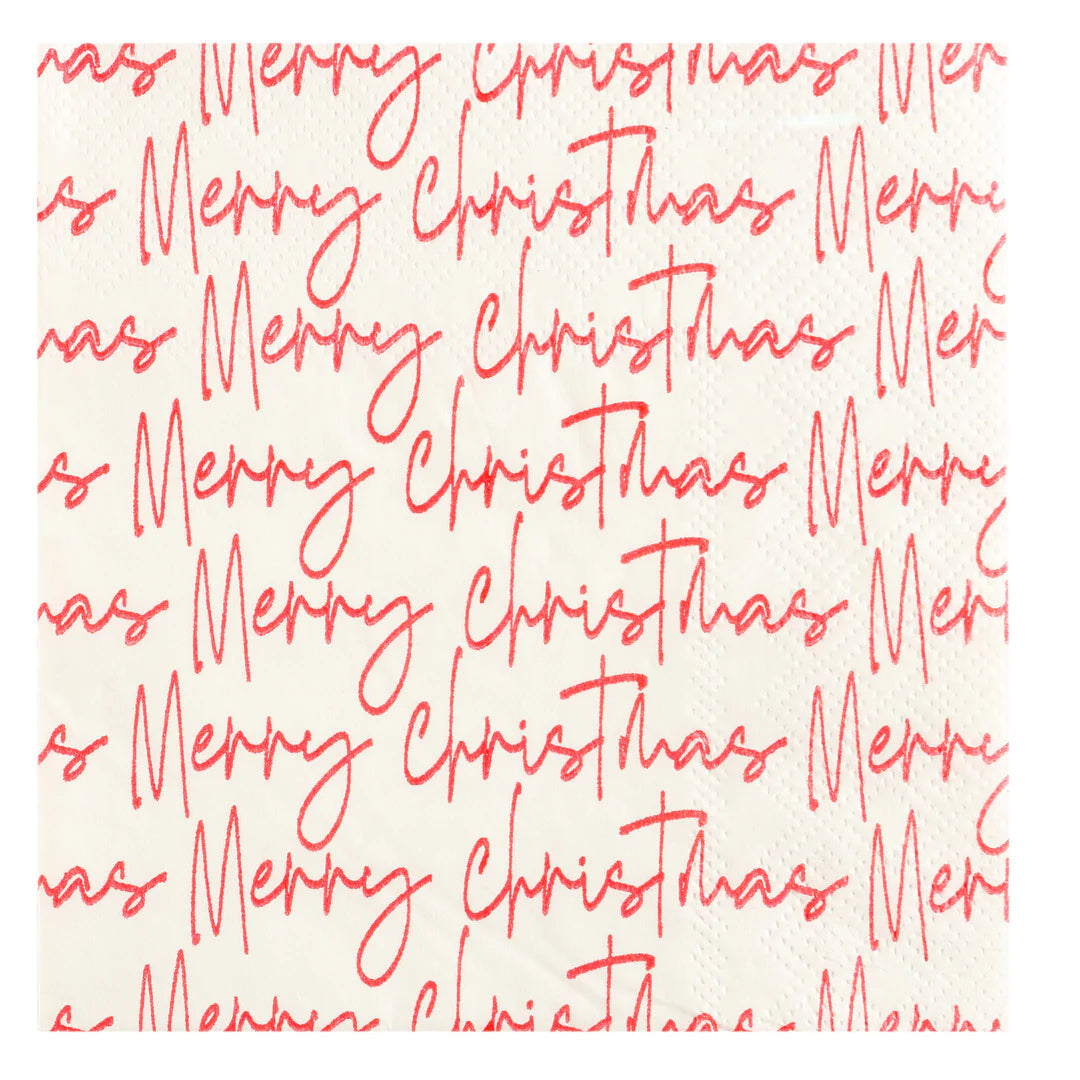 mas Merry Christmas Mer
s Merry Christmas Merry
mas Merry Christmas Mer
s Merry Christmas Merry
mas Merry Christmas Merr
s Merry Christmas Merry
mas Merry Christmas Merr
s Merry Christmas Merry